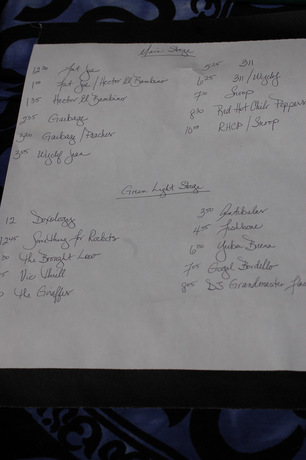 Main Stage
12:00 Fat Joe
1:00 Fat Joe / Hector El Bambino
1:35 Hector El Bambino
2:05 Garbage
3:00 Garbage / Peaches
3:05 Wyclef Jean
5:25 311
6:25 311 / Wyclef
7:00 Snoop
8:30 Red Hot Chile Peppers
10:00 RHCP / Snoop
Green Light Stage
12 Doxology
12:45 Something for Rockets
The Brought Low
Vic Thrill
The Gnaffer
3:50 Rootbaker
4:55 Fishbone
6:00 Yerba Buena
7:05 Gogol Bordello
8:05 DJ Grandmaster